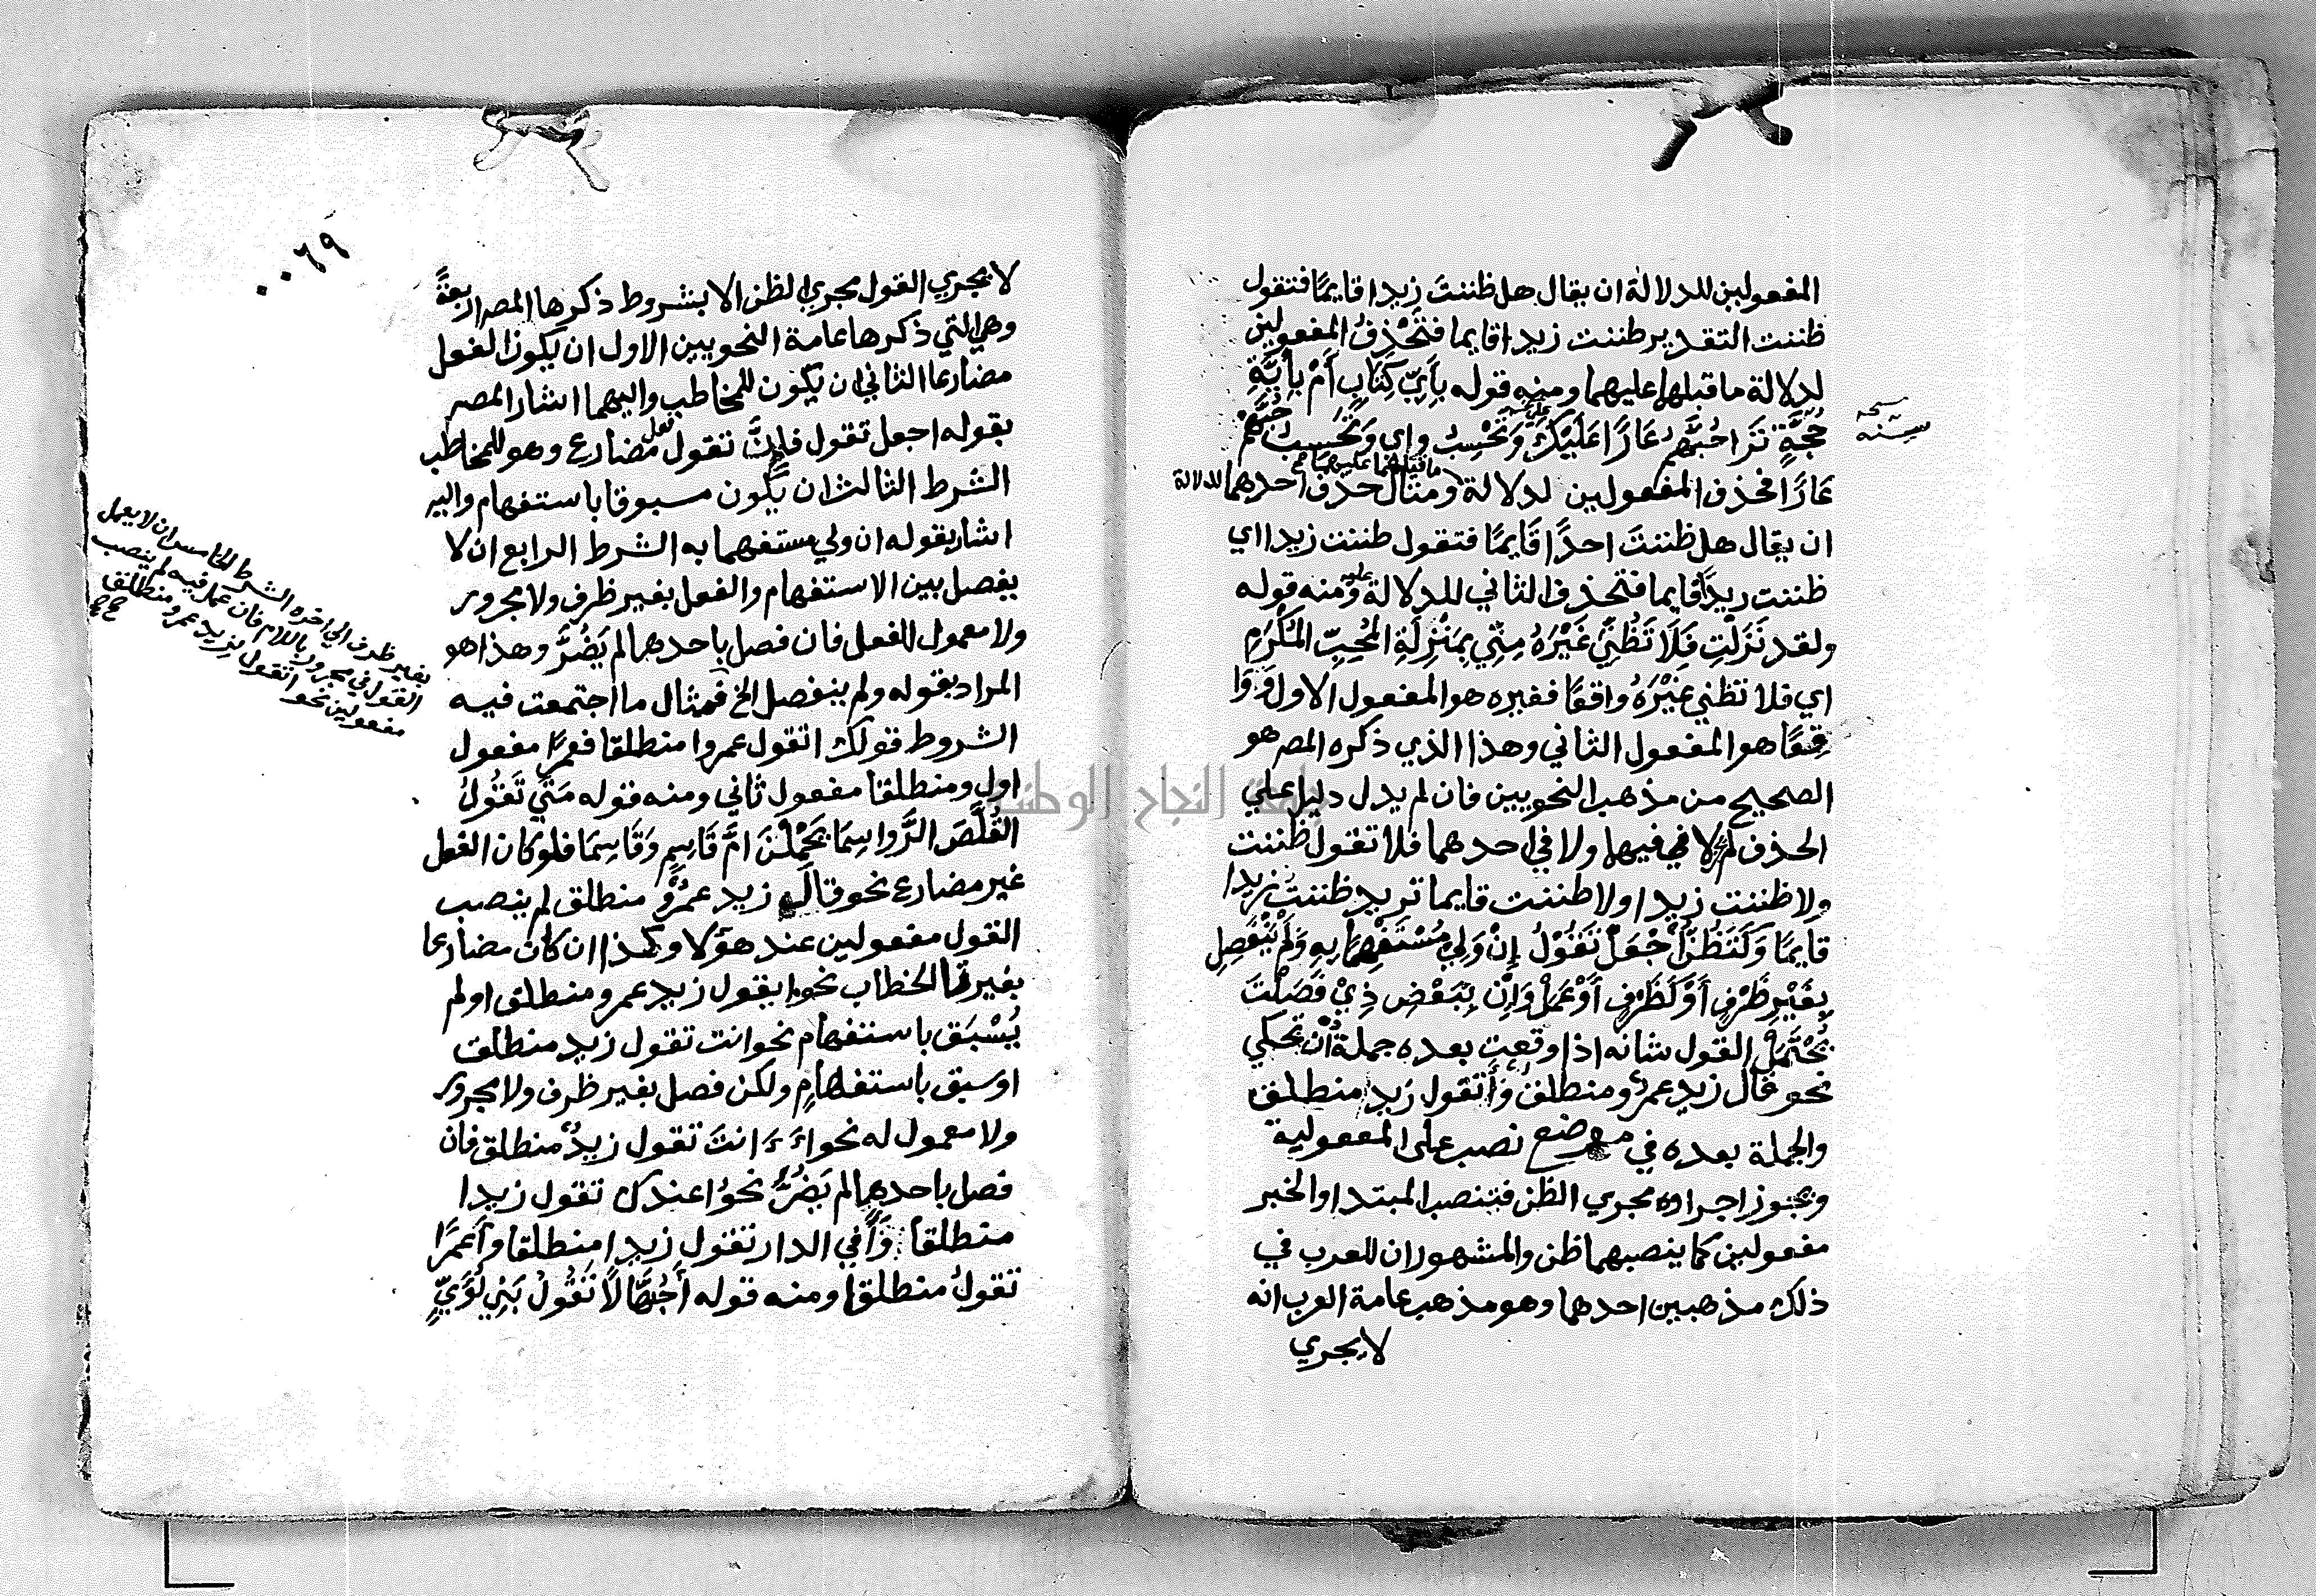 المفعولين للدلالة ان يقال هل ظننتَ زيدا قايمًا فتقول
ظننت التقدير ظننت زيدا قايما فتَحْذِفُ المفعولين
لدلالة ما قبلها عليهما ومنه قوله بِأَيِّ كِتَابٍ أَمْ بِأَيَّةِ
حُجَّةٍ تَرَا حُبَّهُم عَارًا عَلَيْكَ وَتَحْسِبُ واي وَتَحْسِبُ حُبَّهُم
نسخه
سنه
عَارًا فحذف المفعولين لدلالة ما قبلهما عليهما ومثال حذف احدهما للدلالة
ان يقال هل ظننتَ احدًا قَايمًا فتقول ظننت زيدا اي
ظننت زيدًا قايما فتحذف الثاني للدلالة عليه ومنه قوله
ولقد نَزَلْتِ فَلَا تَظُنِّي غَيْرَهُ مِنِّي بِمَنْزِلَةِ المُحِبِّ المُكْرَمِ
اي فلا تظني غَيْرَهُ واقعًا فغيره هو المفعول الاول وَوَا
قِعًا هو المفعول الثاني وهذا الذي ذكره المص هو
الصحيح من مذهب النحويين فان لم يدل دليل علي
الحذف لم لا في فيها ولا في احدهما فلا تقول ظننت
ولا ظننت زيدا ولا ظننت قايما تريد ظننتُ زيدا
قايمًا وَكَتَظُنُّ اجْعَلْ تَقُولُ إِنْ وَلِي مُسْتَفْهَمًا بِهِ وَلَمْ يَنْفَصِلِ
بِغَيْرِ ظَرْفٍ أَوْ كَظَرْفٍ أَوْ عَمَلْ وَإِنْ بِبَعْضِ ذِيْ فَصَلْتَ
يُحْتَمَلْ القول شانه اذا وقعت بعده جملةٌ أنْ تحكي
نحو قال زيد عمرٌو منطلقٌ وَأتقول زيد منطلق
والجملة بعده في موضع نصب على المفعولية
ويجوز اجراوه مجري الظن فتنصب المبتدا والخبر
مفعولين كما ينصبهما ظن والمشهور ان للعرب في
ذلك مذهبين احدهما وهو مذهب عامة العرب انه
لا يجري
٠٠٦٩
لا يجري القول مجري الظن الا بشروط ذكرها المص اربعةً
وهي التي ذكرها عامة النحويين الاول ان يكون الفعل
مضارعا الثاني ان يكون للمخاطب واليهما اشار المصر
بقوله اجعل تقول فإنَّ تقول فعل مضارع وهو للمخاطب
الشرط الثالث ان يكون مسبوقا باستفهام واليه
اشار بقوله ان ولي مستفهما به الشرط الرابع ان لا
يفصل بين الاستفهام والفعل بغير ظرف ولا مجرور
ولا معمول الفعل فان فصل باحدها لم يَضُرَّ وهذا هو
المراد بقوله ولم ينفصل الخ فمثال ما اجتمعت فيه
الشروط قولك اتقول عمروا منطلقا فعمرًا مفعول
اول ومنطلقا مفعول ثاني ومنه قوله مَتَي تَقُولُ
القُلَّصَ الرَّوا سِمَا يَحْمِلْنَ امَّ قَاسِمٍ وَقَاسِمَا فلو كان الفعل
غير مضارع نحو قال زيد عمرٌو منطلق لم ينصب
القول مفعولين عند هؤلا وكذا ان كان مضارعا
بغير تا الخطاب نحو يقول زيد عمرو منطلق او لم
يُسْبَق باستفهام نحو انت تقول زيد منطلق
او سبق باستفهامٍ ولكن فصل بغير ظرف ولا مجرور
ولا معمول له نحو اءَنتَ تقول زيدٌ منطلق فان
فصل باحدها لم يَضُرَّ نحوُ اعندك تقول زيدا
منطلقا وَأَفي الدار تقول زيدا منطلقا وأعمرًا
تقولُ منطلقا ومنه قوله أَجُهَّالًا تَقُولُ بَنِي لُؤَيٍّ
بغير ظرف الي اخره الشرط الخامس ان لا يعمل
القول في مجرور باللام فان عمل فيه لم ينصب
مفعولين نحو اتقول لزيد عمرو منطلق
جامعة النجاح الوطنية